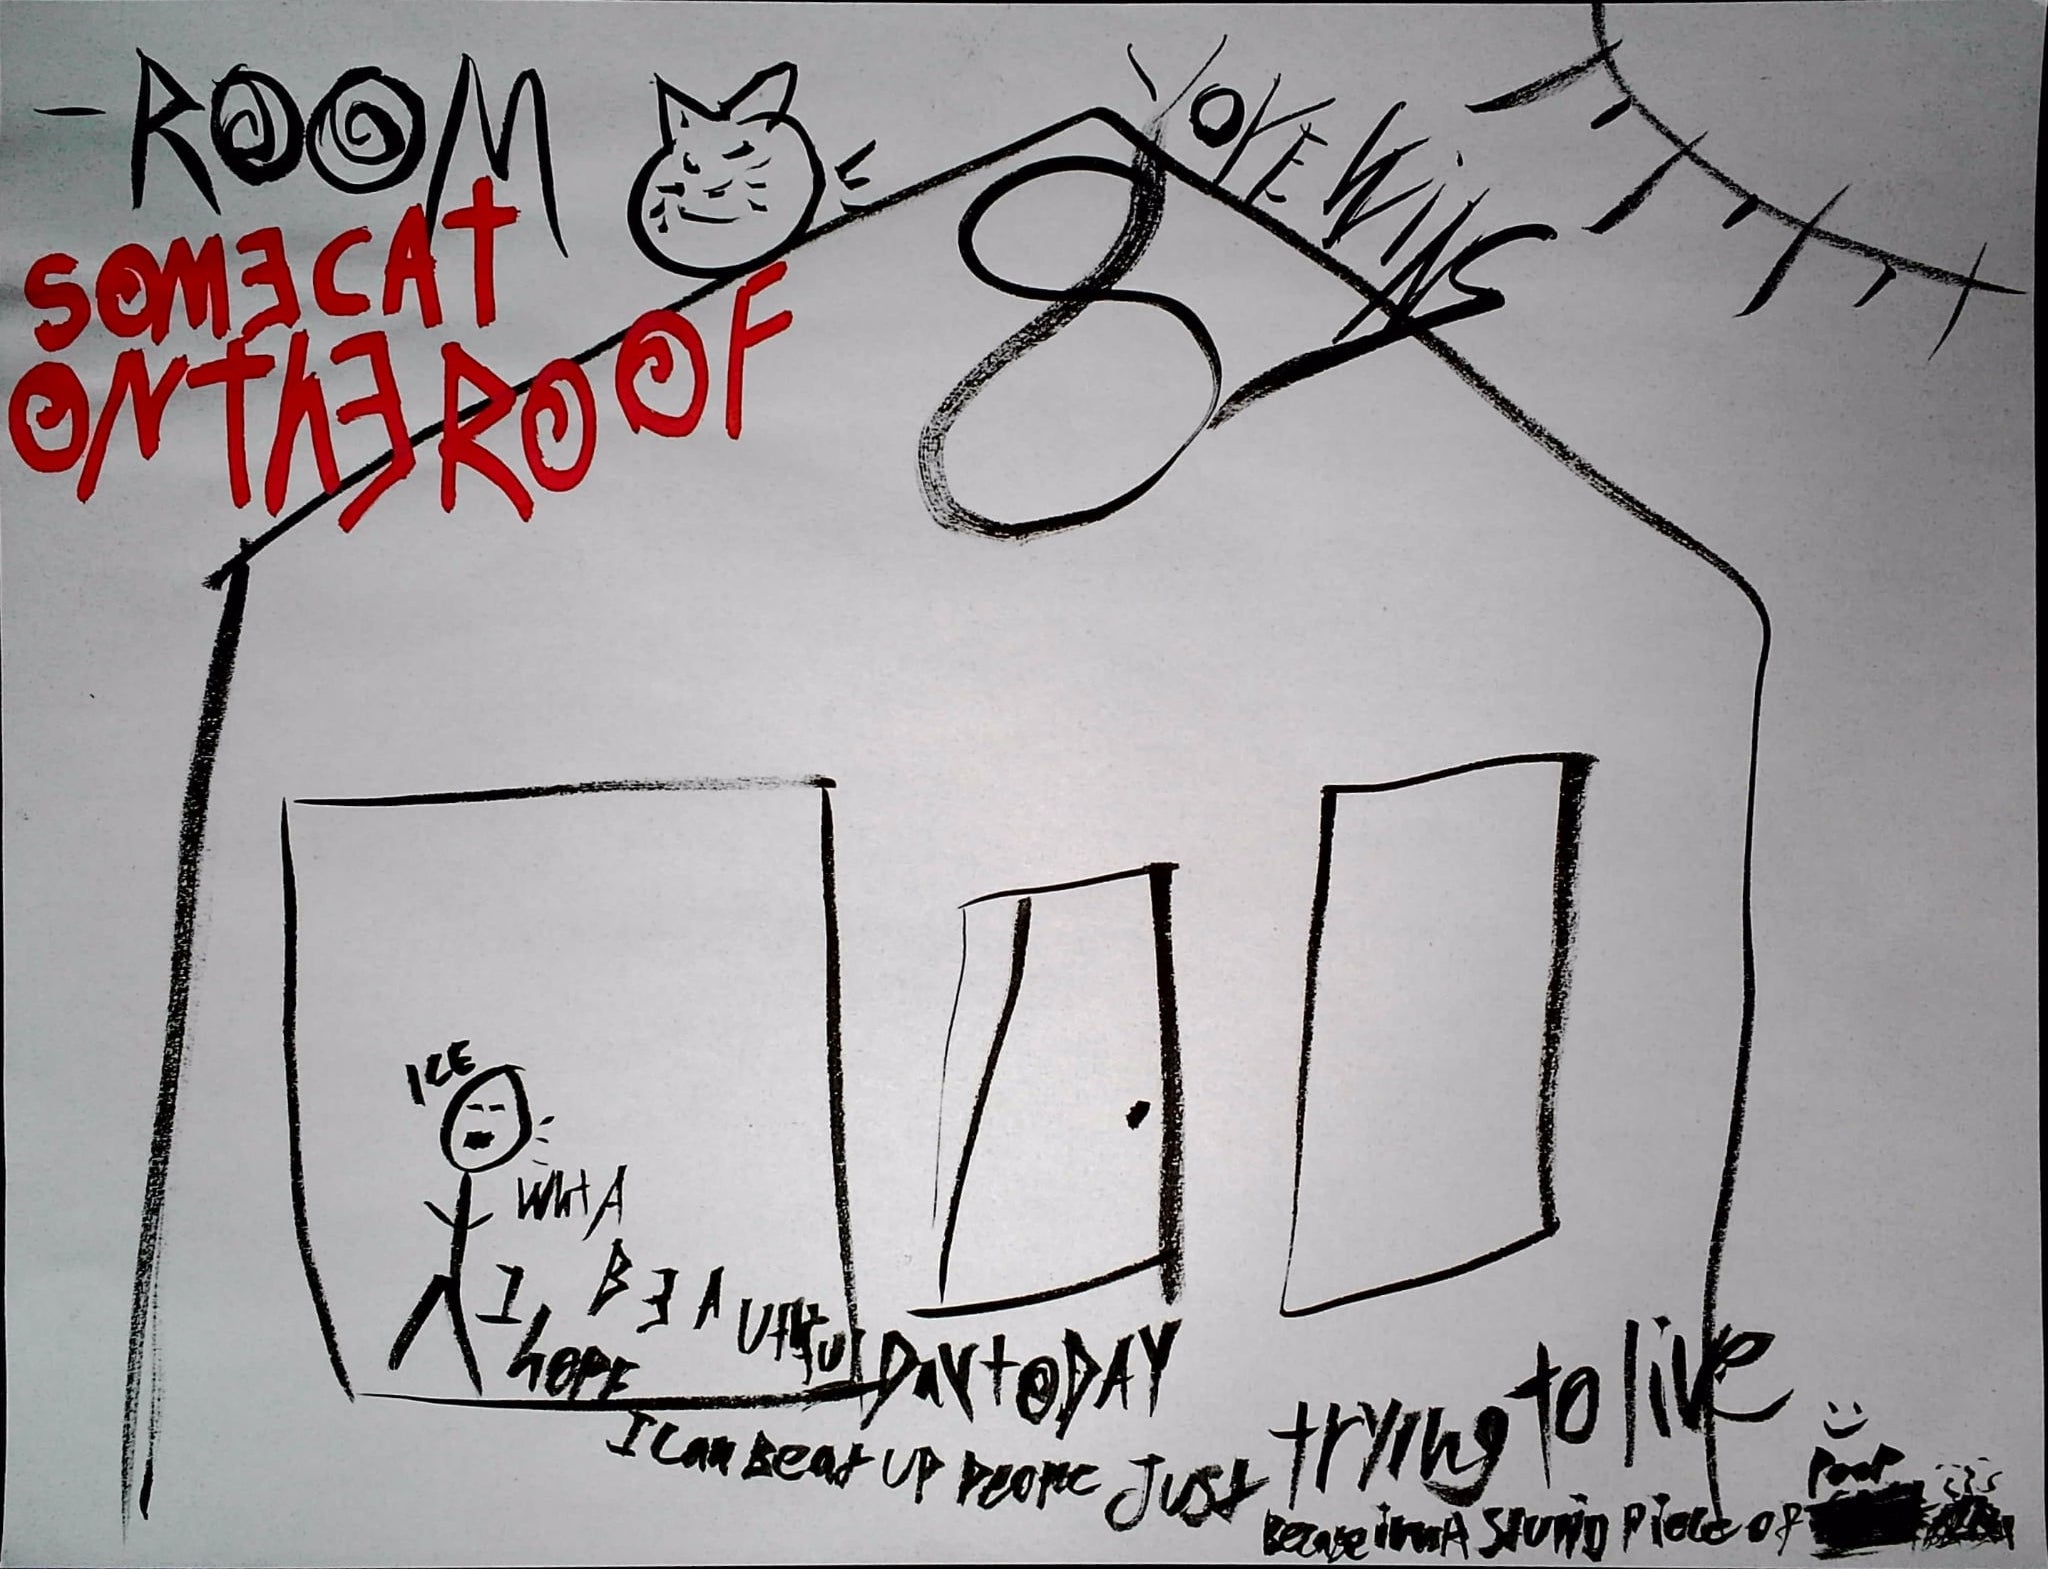 -ROOM
SOMECAT
ONTHEROOF
8
WINS
ICE
WhtA
BEAUtiful DAY tODAY
I hOPE
I Can Beat UP PEOPlE Just trying to live
POOP
Because imA StuPiD Piece of